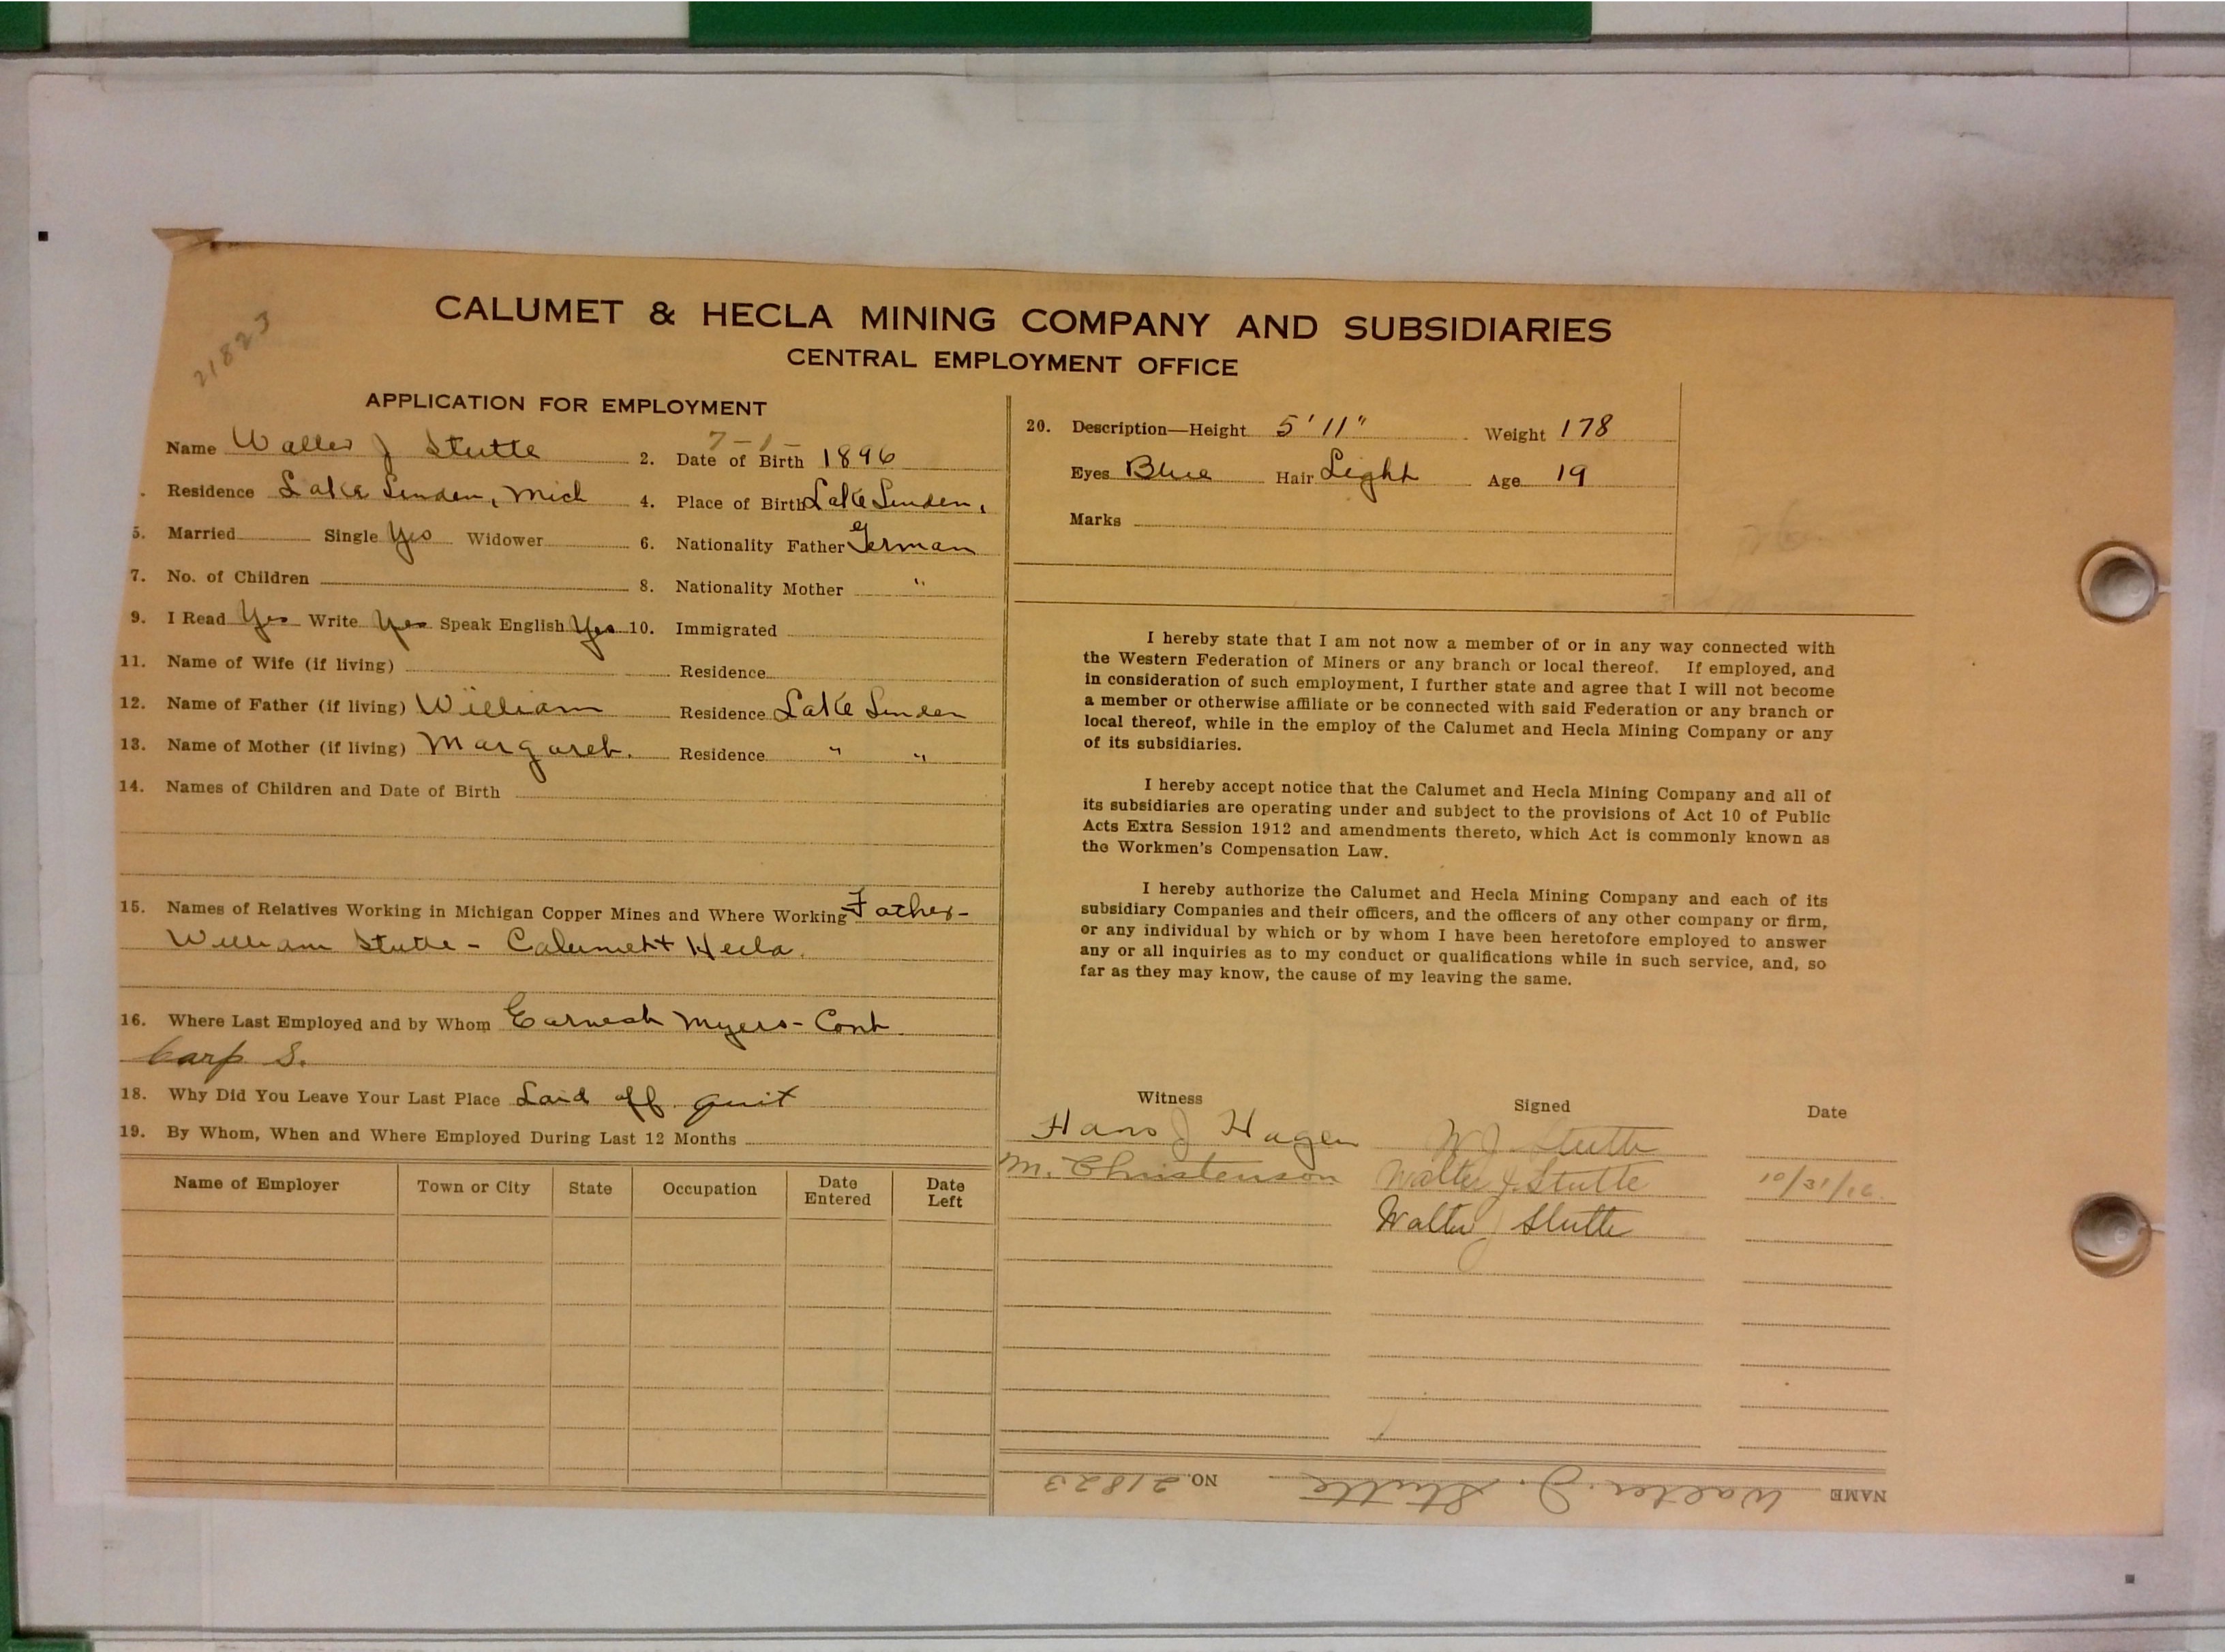 21823
CALUMET & HECLA MINING COMPANY AND SUBSIDIARIES
CENTRAL EMPLOYMENT OFFICE
APPLICATION FOR EMPLOYMENT
Name Walter J Stutte
2. Date of Birth 7-1- 1896
. Residence Lake Linden, Mich
4. Place of Birth Lake Linden,
5. Married Single Yes Widower
6. Nationality Father German
7. No. of Children
8. Nationality Mother "
9. I Read Yes Write Yes Speak English Yes
10. Immigrated
11. Name of Wife (if living) Residence
12. Name of Father (if living) William Residence Lake Linden
13. Name of Mother (if living) Margaret. Residence " "
14. Names of Children and Date of Birth
15. Names of Relatives Working in Michigan Copper Mines and Where Working Father-
William Stutte - Calumet + Hecla.
16. Where Last Employed and by Whom Earnest Myers - Cont
Carp S.
18. Why Did You Leave Your Last Place Laid off. quit
19. By Whom, When and Where Employed During Last 12 Months
Name of Employer Town or City State Occupation Date Entered Date Left
20. Description—Height 5' 11" Weight 178
Eyes Blue Hair Light Age 19
Marks
I hereby state that I am not now a member of or in any way connected with
the Western Federation of Miners or any branch or local thereof. If employed, and
in consideration of such employment, I further state and agree that I will not become
a member or otherwise affiliate or be connected with said Federation or any branch or
local thereof, while in the employ of the Calumet and Hecla Mining Company or any
of its subsidiaries.
I hereby accept notice that the Calumet and Hecla Mining Company and all of
its subsidiaries are operating under and subject to the provisions of Act 10 of Public
Acts Extra Session 1912 and amendments thereto, which Act is commonly known as
the Workmen's Compensation Law.
I hereby authorize the Calumet and Hecla Mining Company and each of its
subsidiary Companies and their officers, and the officers of any other company or firm,
or any individual by which or by whom I have been heretofore employed to answer
any or all inquiries as to my conduct or qualifications while in such service, and, so
far as they may know, the cause of my leaving the same.
Witness Signed Date
Hans J Hagen W J. Stutte
M. Christenson Walter J. Stutte 10/31/16.
Walter J Stutte
NAME Walter J. Stutte NO. 21823